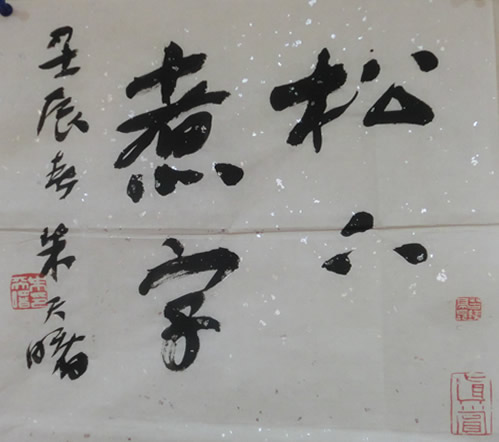 松下
煮字
壬辰春 朱天曙